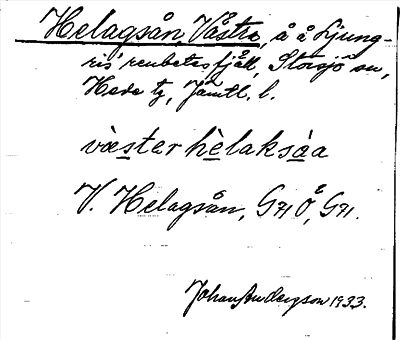 Helagsån, Västra, å å Ljung-
ris' renbetesfjäll, Storsjö sn,
Hede tg, Jämtl. l.
vӕster hèlaksàa
V. Helagsån, G71 Ö, G71.
Johan Andersson 1933.